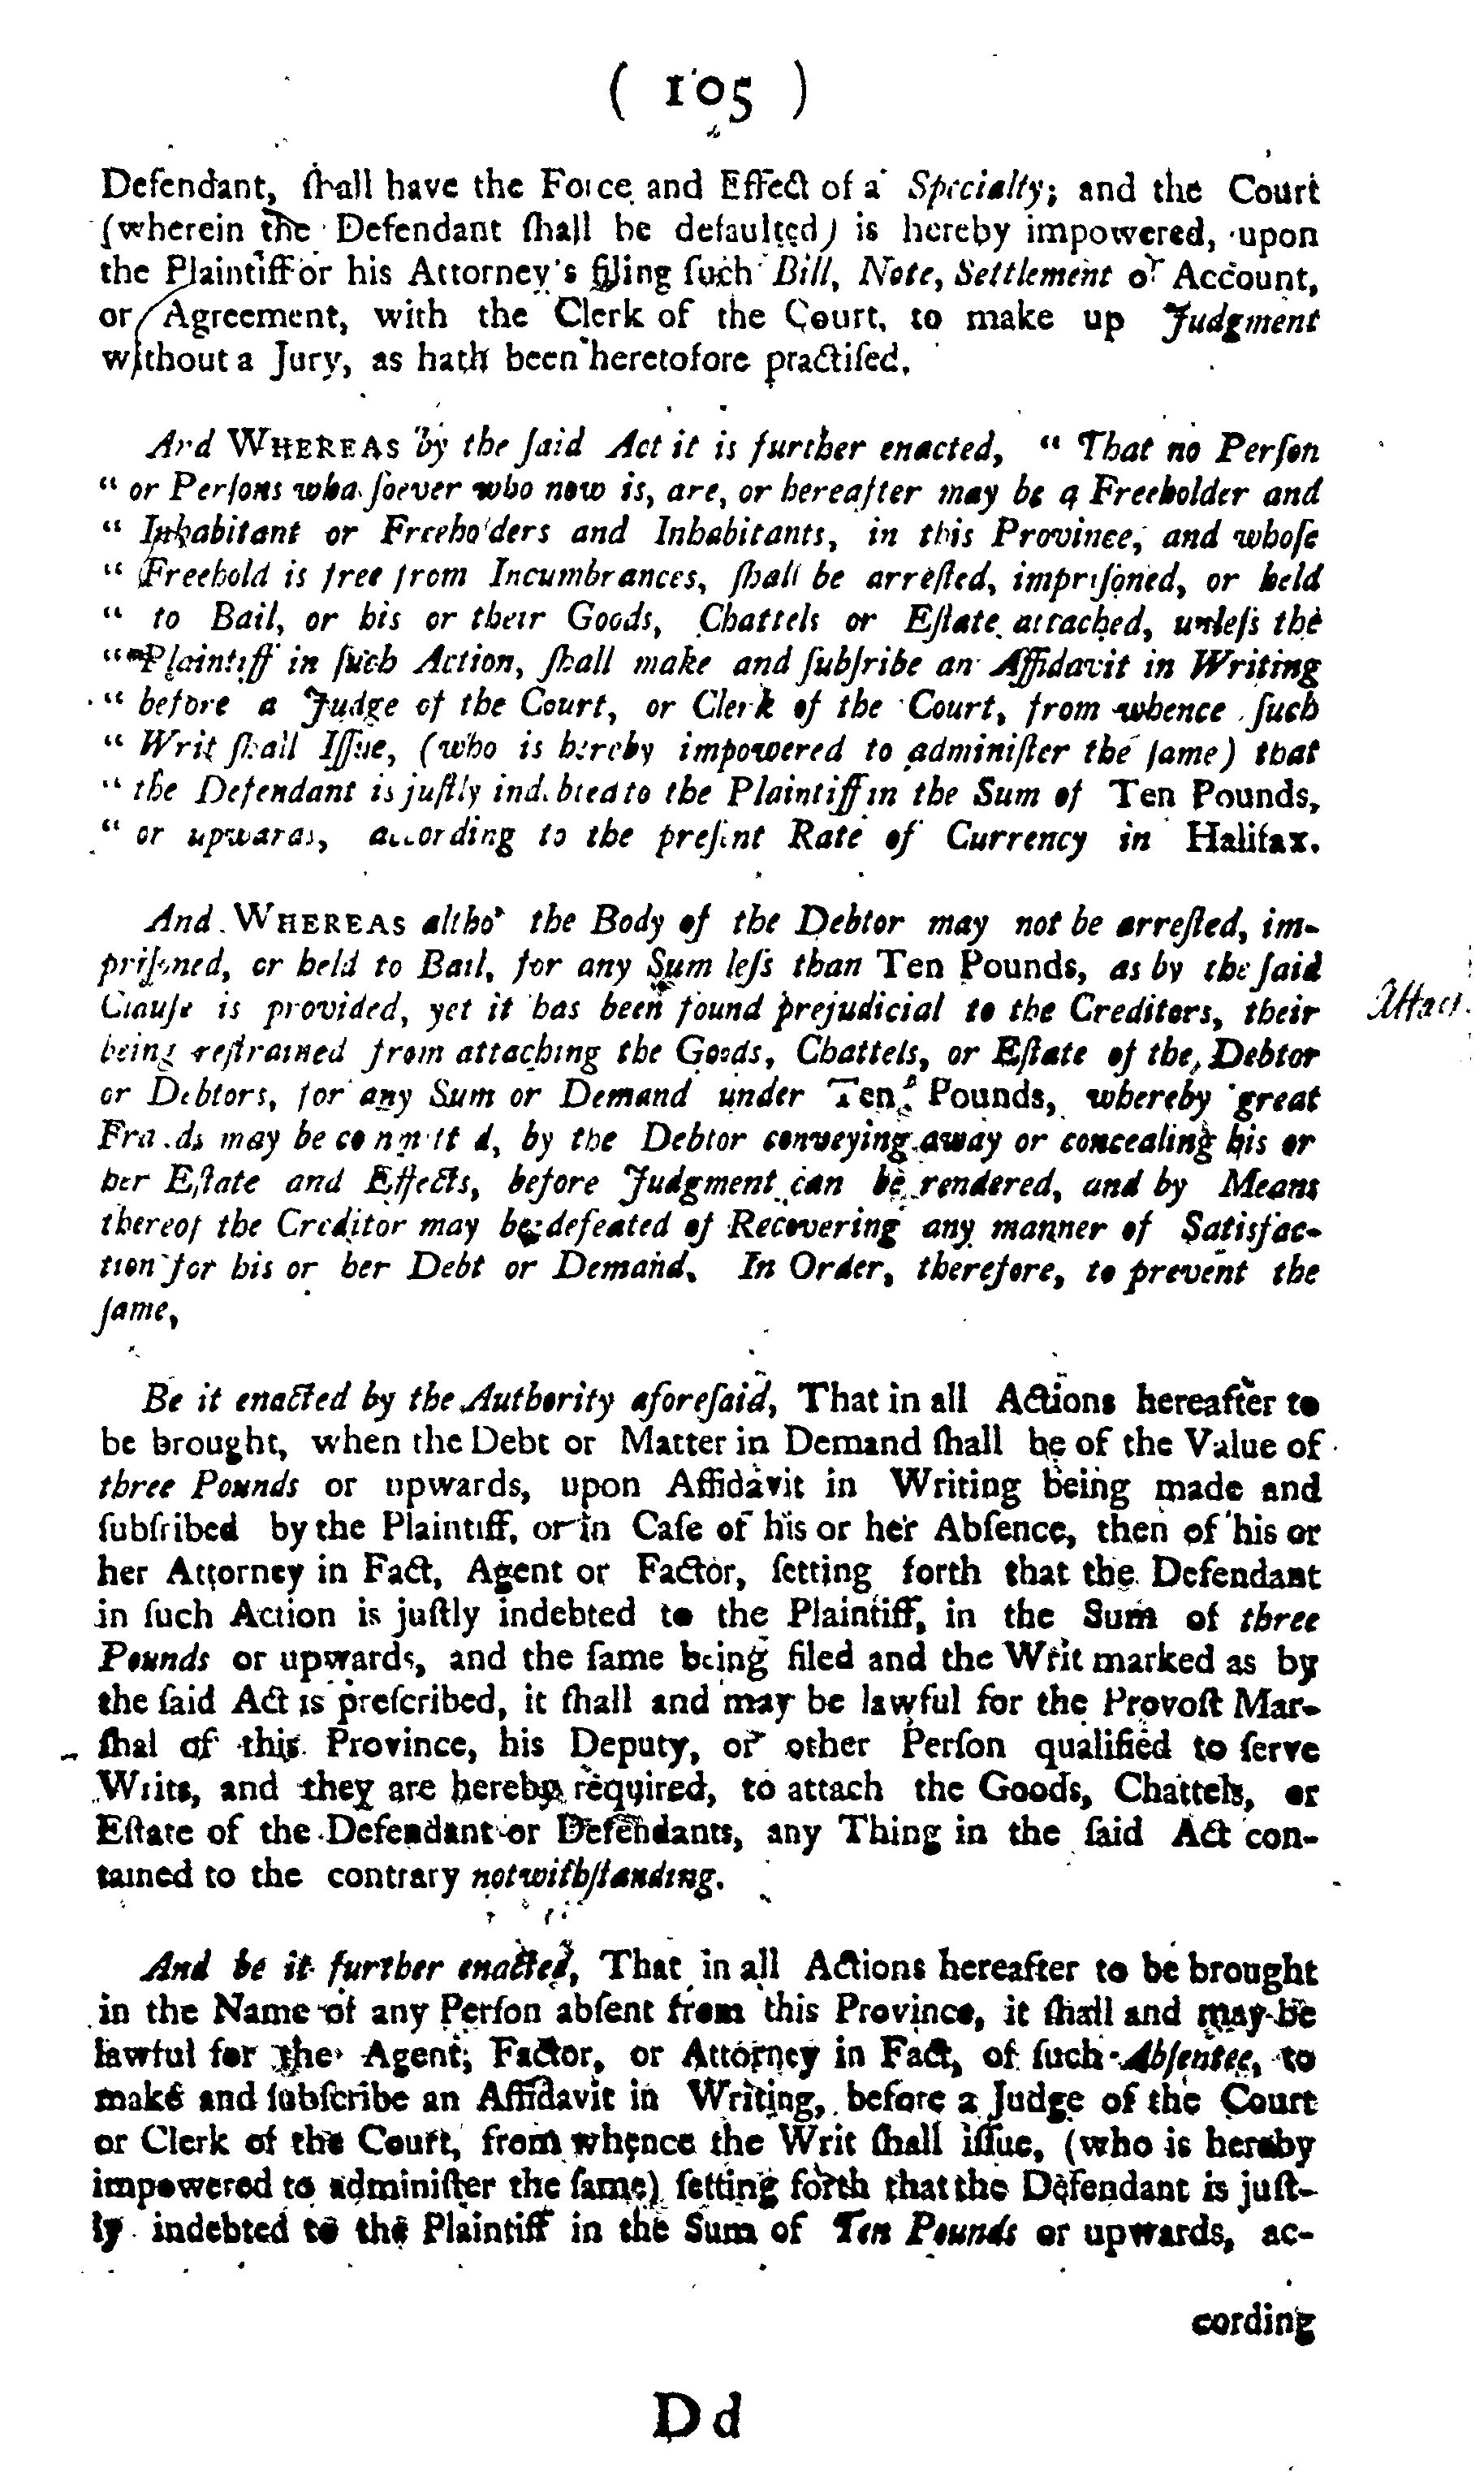 ( 105 )
Defendant, ſhall have the Force and Effect of a Specialty; and the Court
(wherein the Defendant ſhall be defaulted) is hereby impowered, upon
the Plaintiff or his Attorney's filing ſuch Bill, Note, Settlement or Account,
or Agreement, with the Clerk of the Court, to make up Judgment
without a Jury, as hath been heretofore practiſed.
And WHEREAS by the ſaid Act it is further enacted, " That no Perſon
" or Perſons whatſoever who now is, are, or hereafter may be a Freeholder and
" Inhabitant or Freeholders and Inhabitants, in this Province, and whoſe
" Freehold is free from Incumbrances, ſhall be arreſted, impriſoned, or held
" to Bail, or his or their Goods, Chattels or Eſtate attached, unleſs the
" Plaintiff in ſuch Action, ſhall make and ſubſribe an Affidavit in Writing
" before a Judge of the Court, or Clerk of the Court, from whence ſuch
" Writ ſhall Iſſue, (who is hereby impowered to adminiſter the ſame) that
" the Defendant is juſtly indebted to the Plaintiff in the Sum of Ten Pounds,
" or upwards, according to the preſent Rate of Currency in Halifax.
And WHEREAS altho' the Body of the Debtor may not be arreſted, im-
priſoned, or held to Bail, for any Sum leſs than Ten Pounds, as by the ſaid
Clauſe is provided, yet it has been found prejudicial to the Creditors, their
being reſtrained from attaching the Goods, Chattels, or Eſtate of the Debtor
or Debtors, for any Sum or Demand under Ten Pounds, whereby great
Frauds may be committed, by the Debtor conveying away or concealing his or
her Eſtate and Effects, before Judgment can be rendered, and by Means
thereof the Creditor may be defeated of Recovering any manner of Satisfac-
tion for his or her Debt or Demand. In Order, therefore, to prevent the
ſame,
Be it enacted by the Authority aforeſaid, That in all Actions hereafter to
be brought, when the Debt or Matter in Demand ſhall be of the Value of
three Pounds or upwards, upon Affidavit in Writing being made and
ſubſribed by the Plaintiff, or in Caſe of his or her Abſence, then of his or
her Attorney in Fact, Agent or Factor, ſetting forth that the Defendant
in ſuch Action is juſtly indebted to the Plaintiff, in the Sum of three
Pounds or upwards, and the ſame being filed and the Writ marked as by
the ſaid Act is preſcribed, it ſhall and may be lawful for the Provoſt Mar-
ſhal of this Province, his Deputy, or other Perſon qualified to ſerve
Writs, and they are hereby required, to attach the Goods, Chattels, or
Eſtate of the Defendant or Defendants, any Thing in the ſaid Act con-
tained to the contrary notwithſtanding.
And be it further enacted, That in all Actions hereafter to be brought
in the Name of any Perſon abſent from this Province, it ſhall and may be
lawful for the Agent, Factor, or Attorney in Fact, of ſuch Abſentee, to
make and ſubſcribe an Affidavit in Writing, before a Judge of the Court
or Clerk of the Court, from whence the Writ ſhall iſſue, (who is hereby
impowered to adminiſter the ſame) ſetting forth that the Defendant is juſt-
ly indebted to the Plaintiff in the Sum of Ten Pounds or upwards, ac-
cording
D d